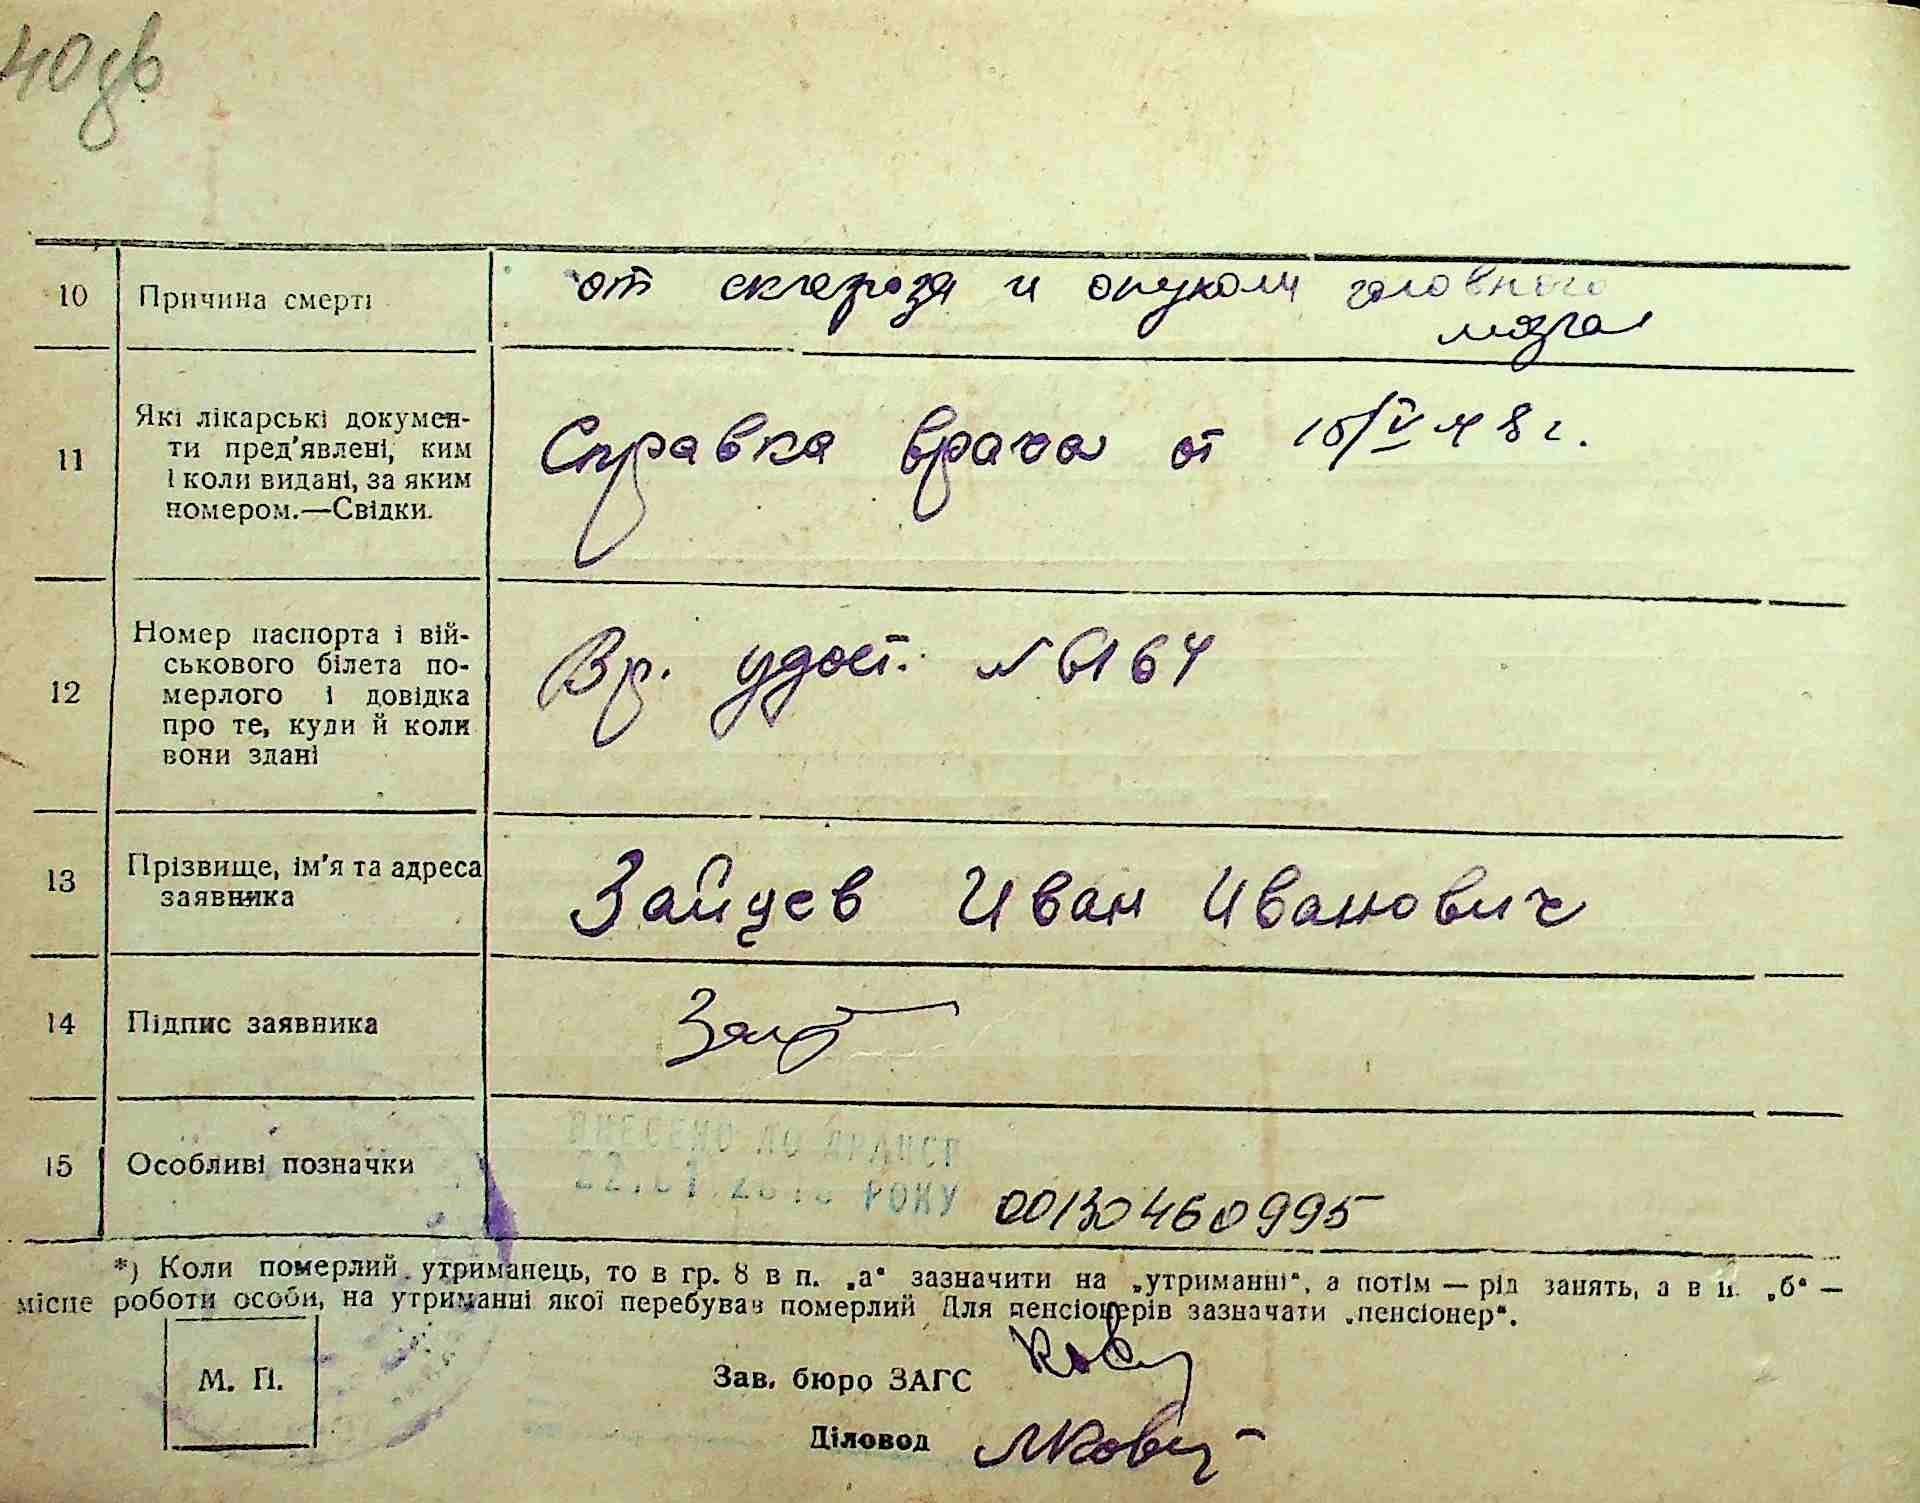 40 зв
10 Причина смерті от склероза и опухоли головного
мозга
11 Які лікарські докумен-
ти пред'явлені, ким
і коли видані, за яким
номером.—Свідки.
Справка врача от 15/V 48 г.
12 Номер паспорта і вій-
ськового білета по-
мерлого і довідка
про те, куди й коли
вони здані
Вр. удост. № 6164
13 Прізвище, ім'я та адреса
заявника
Зайцев Иван Иванович
14 Підпис заявника
15 Особливі позначки
ВНЕСЕНО ДО ДРАЦСГ
РОКУ 00130460995
*) Коли померлий утриманець, то в гр. 8 в п. „а“ зазначити на „утриманні“, а потім — рід занять, а в п. „б“ —
місце роботи особи, на утриманні якої перебував померлий Для пенсіонерів зазначати „пенсіонер“.
М. П.
Зав. бюро ЗАГС
Діловод